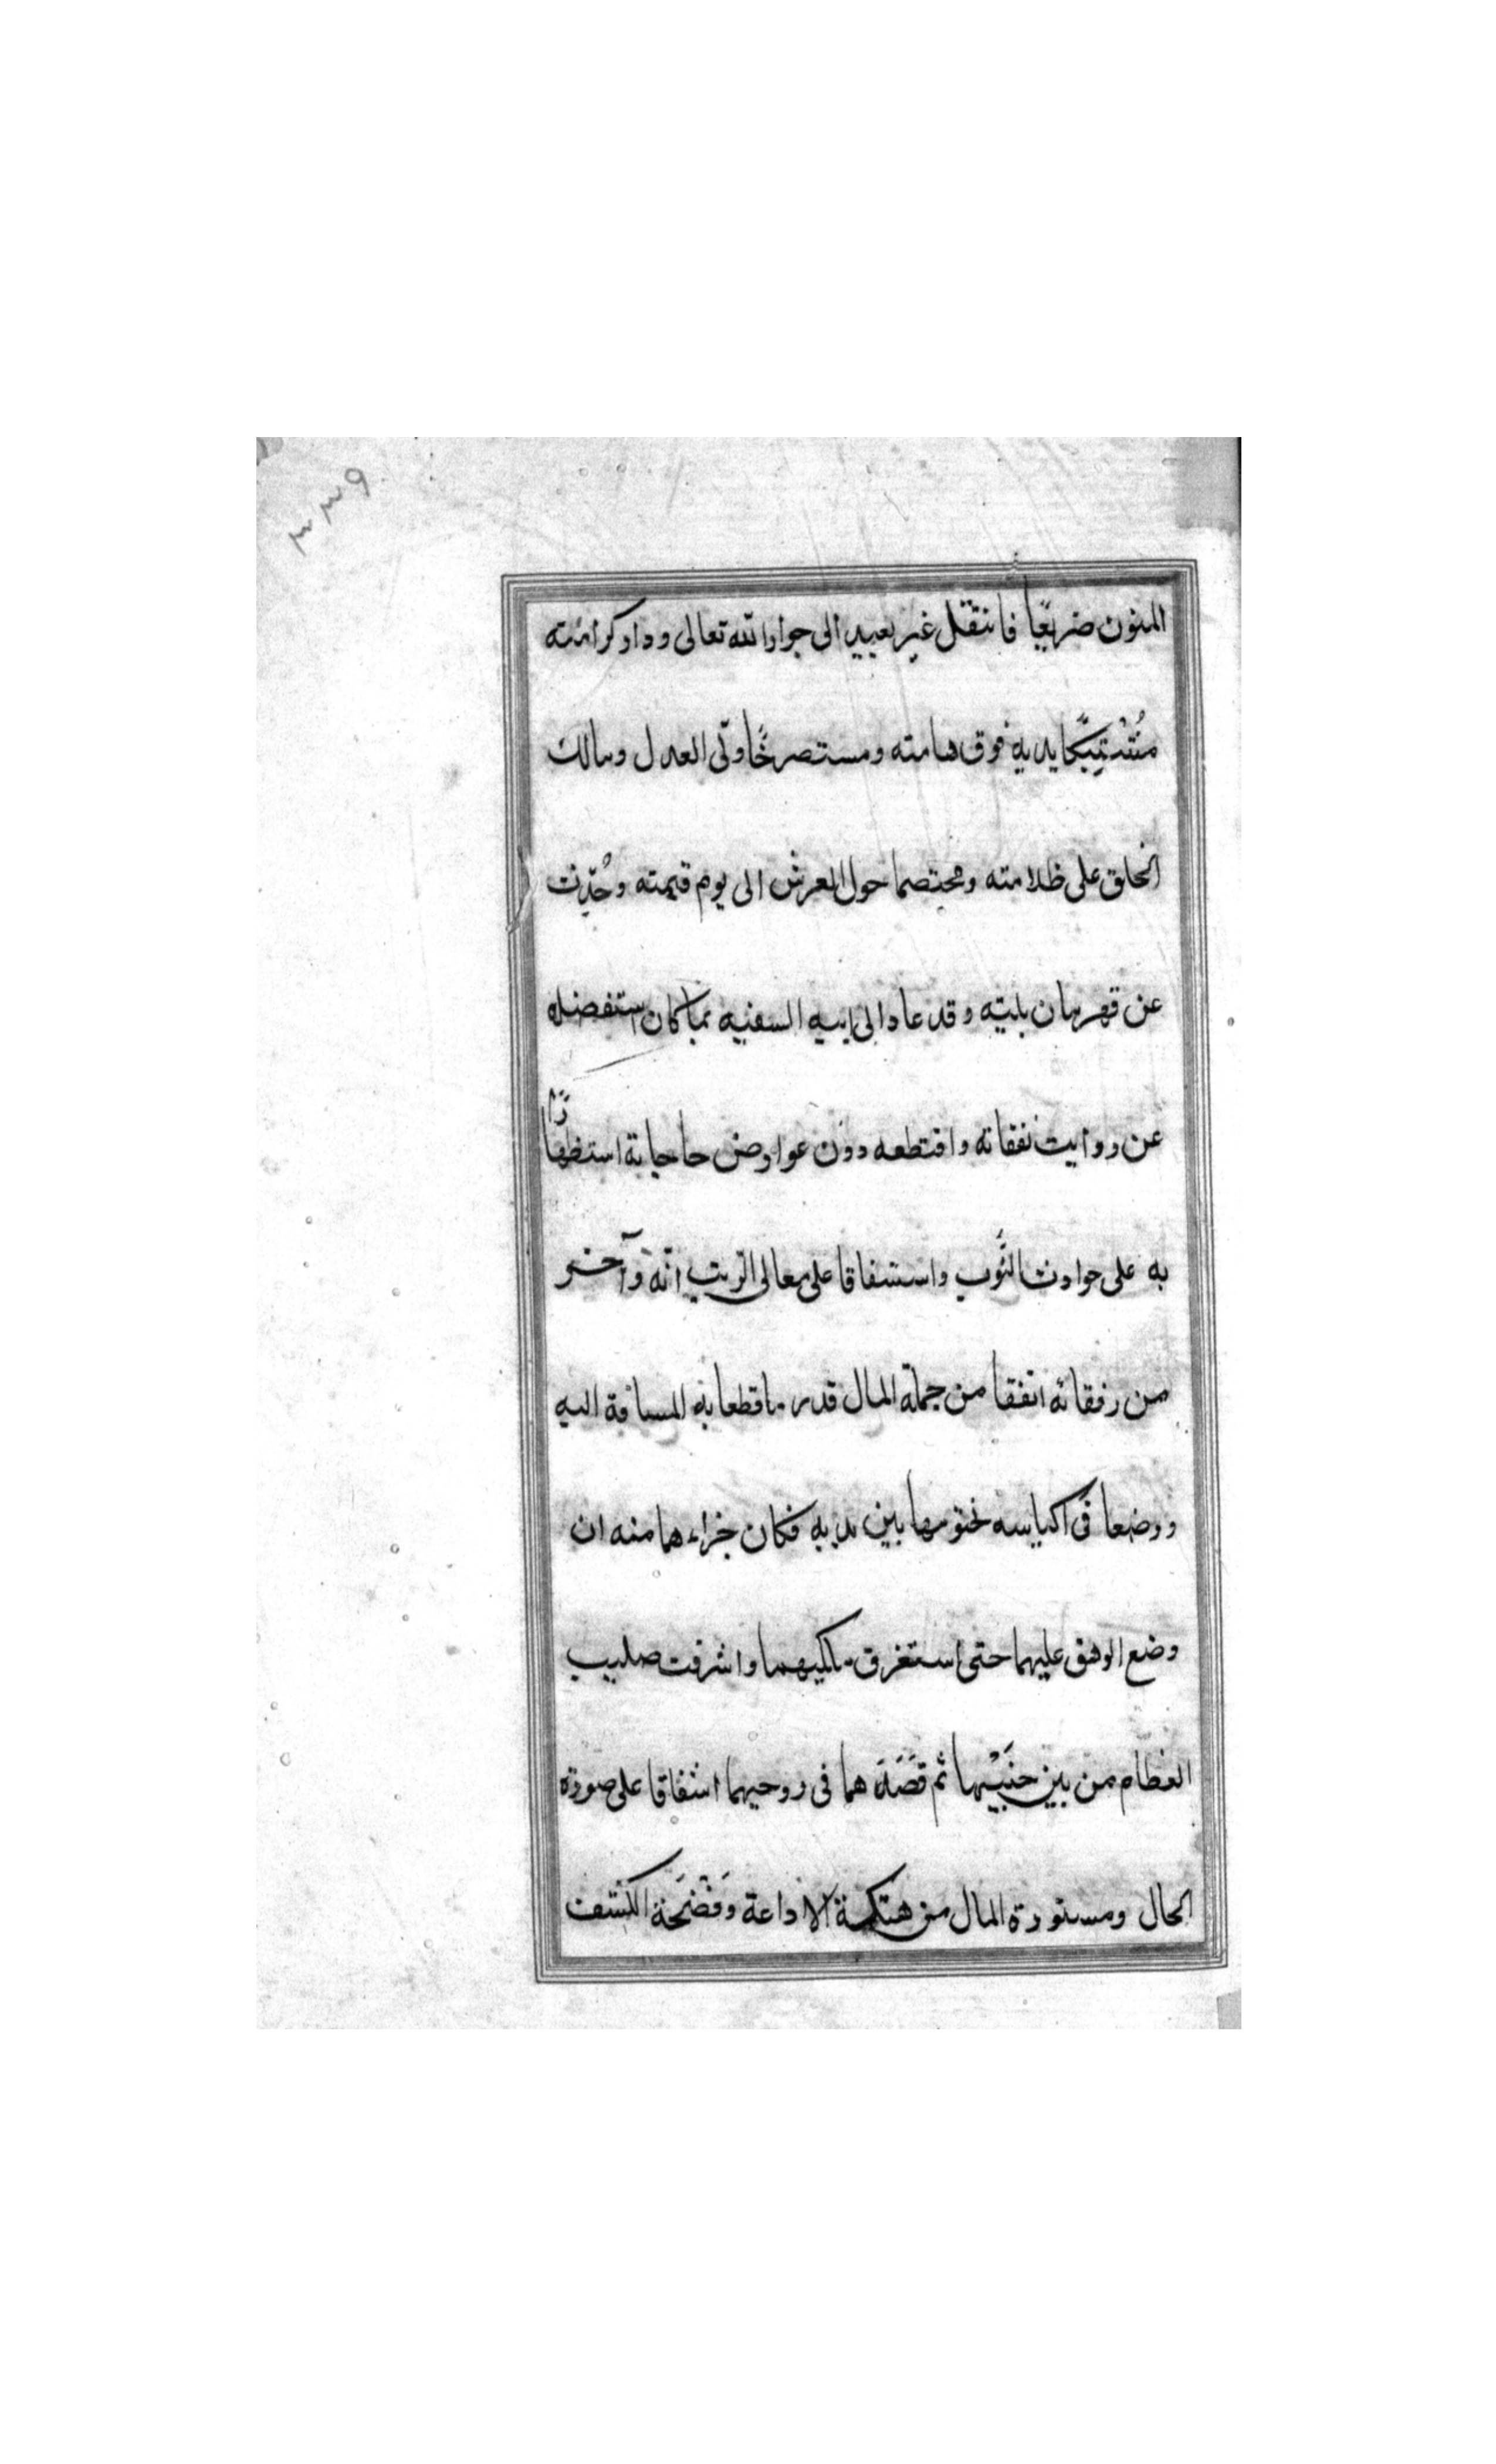 ٣٣٩
المنون ضريعًا فانتقل غير بعيد الى جوار الله تعالى ودار كرامته
مُتشبِّكًا يديه فوق هامته ومستصرخًا ولّى العدل ومالك
الخلق على ظلامته ومختصما حول العرش الى يوم قيمته وحُدّثت
عن قهرمان بليته وقد عاد الى ابيه السفيه بما كان استفضله
عن رواتب نفقاته واقتطعه دون عوارض حاجاته استظهارًا
به على حوادث النُّوَب واستشفاقا على معالى الرتب انّه وآخر
من رفقائه اتفقا من جملة المال قدر ما قطعا به المسافة اليه
ووضعا فى اكياسه بختومها بين يديه فكان جزاءهما منه ان
وضع الوهق عليهما حتى استغرق ملكيهما واشرفت صليب
العظام من بين جنبَيْهما ثم قَصَدَهما فى روحيهما اشفاقا على صورة
الحال ومستورة المال من هتكة الاذاعة وفَضْحَة الكشف